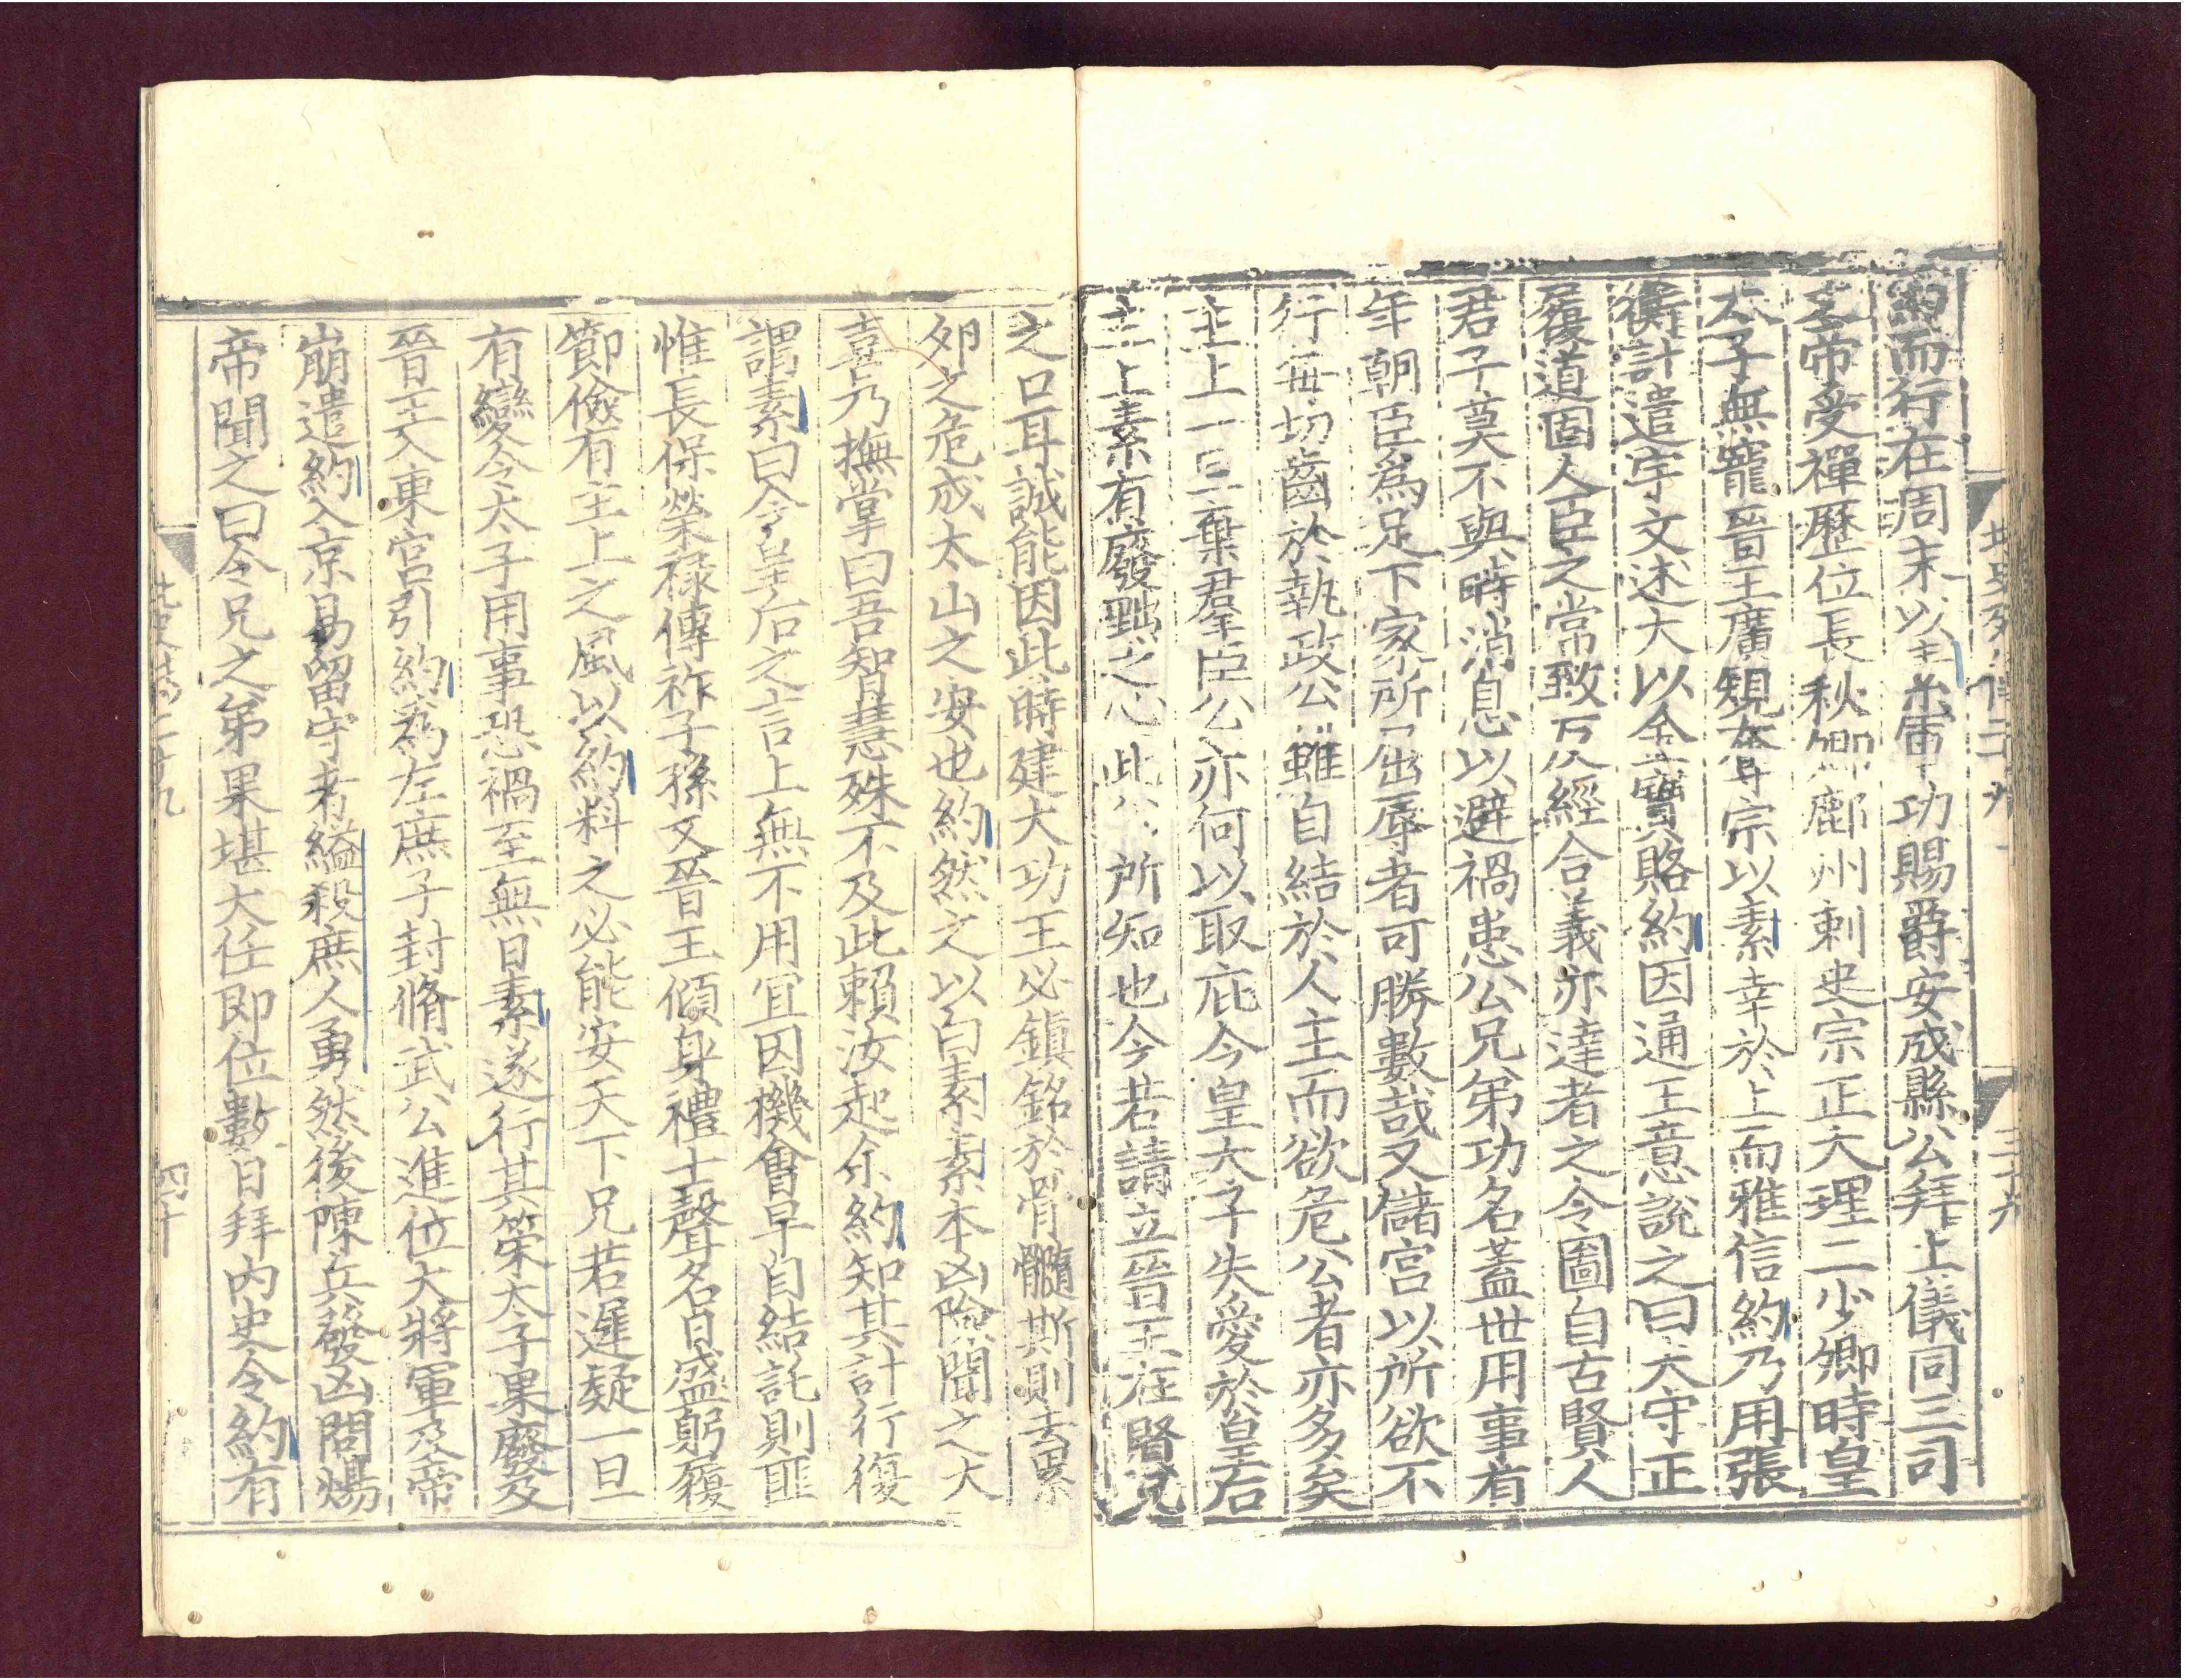 約而行在周末以素軍功賜爵安成縣公拜上儀同三司
文帝受禪歷位長秋卿鄜州刺史宗正大理二少卿時皇
太子無寵晉王廣規奪宗以素幸於上而雅信約乃用張
衡計遣宇文述大以金寶賂約因通王意說之曰夫守正
履道固人臣之常致反經合義亦達者之令圖自古賢人
君子莫不與時消息以避禍患公兄弟功名蓋世用事有
年朝臣爲足下家所屈辱者可勝數哉又儲宮以所欲不
行每切齒於執政公雖自結於人主而欲危公者亦多矣
主上一旦棄羣臣公亦何以取庇今皇太子失愛於皇后
主上素有廢黜之心此公所知也今若請立晉王在賢兄
北史列傳二十九
三十九
之口耳誠能因此時建大功王必鎮銘於骨髓斯則去累
卵之危成太山之安也約然之以白素素本凶險聞之大
喜乃撫掌曰吾智慧殊不及此賴汝起余約知其計行復
謂素曰今皇后之言上無不用宜因機會早自結託則匪
惟長保榮祿傳祚子孫又晉王傾身禮士聲名日盛躬履
節儉有主上之風以約料之必能安天下兄若遲疑一旦
有變令太子用事恐禍至無日素遂行其策太子果廢及
晉王入東宮引約爲左庶子封脩武公進位大將軍及帝
崩遣約入京易留守者縊殺庶人勇然後陳兵發凶問煬
帝聞之曰令兄之弟果堪大任即位數日拜內史令約有
北史列傳二十九
四十